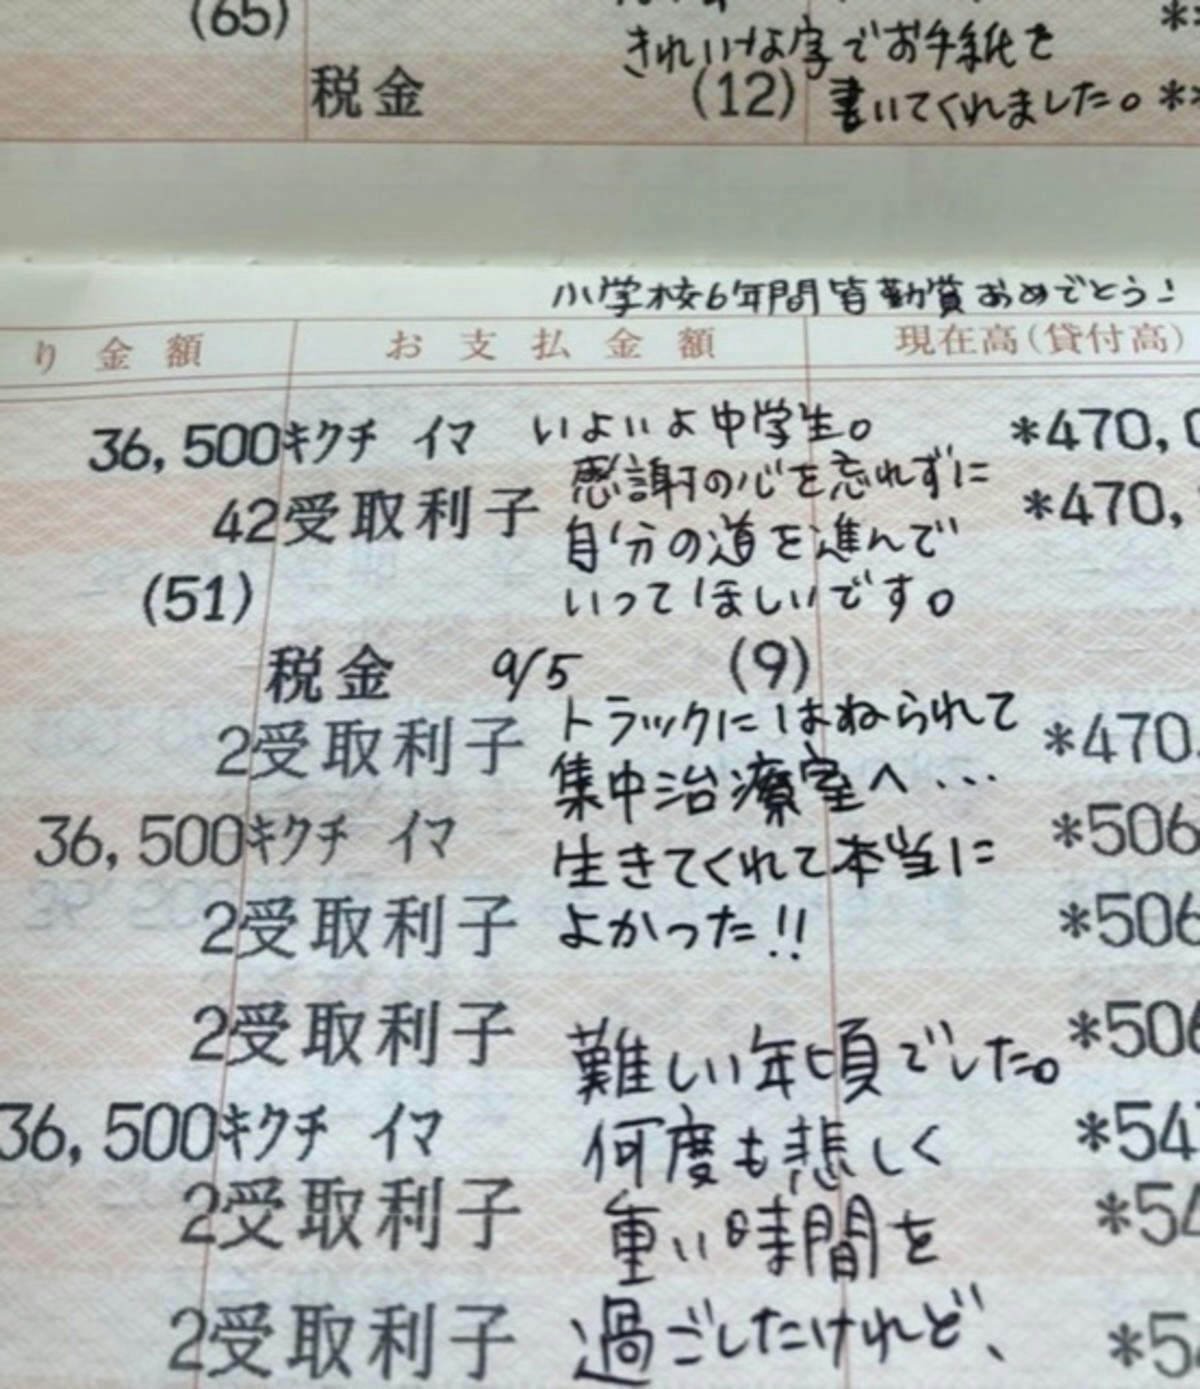 (65)
きれいな字でお手紙を
税金 (12) 書いてくれました。 **
小学校6年間皆勤賞おめでとう!
り金額 お支払金額 現在高(貸付高)
36,500 キクチ イマ いよいよ中学生。 *470,0
感謝の心を忘れずに
42 受取利子 *470,
自分の道を進んで
(51) いってほしいです。
税金 9/5 (9)
トラックにはねられて
2 受取利子 *470
集中治療室へ・・・
36,500 キクチ イマ *506
生きてくれて本当に
2 受取利子 よかった!! *506
2 受取利子 *506
難しい年頃でした。
36,500 キクチ イマ 何度も悲しく *54
2 受取利子 重い時間を *54
2 受取利子 過ごしたけれど、 *5